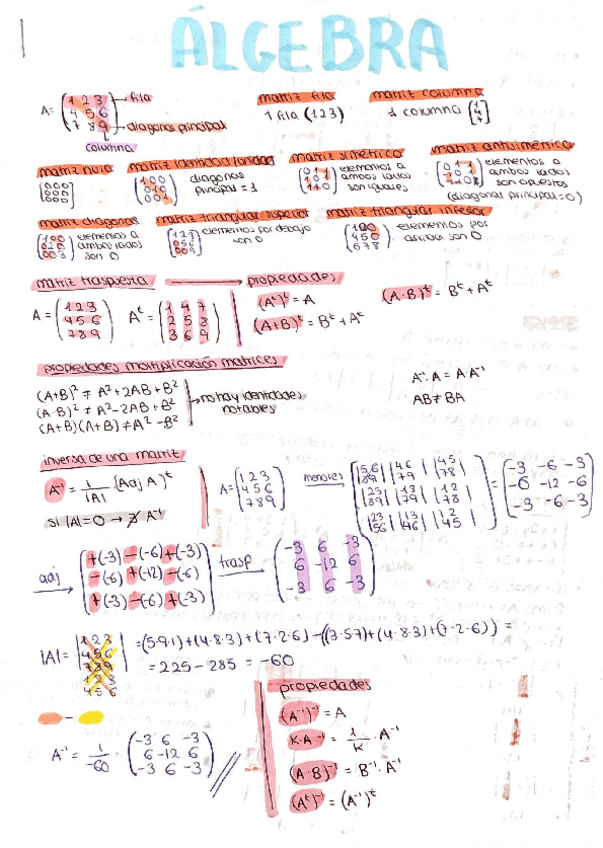 ÁLGEBRA
A= (1 2 3 / 4 5 6 / 7 8 9) fila
diagonal principal
columna
matriz fila
1 fila (1 2 3)
matriz columna
1 columna (1 / 4 / 7)
matriz nula
(000 / 000 / 000)
matriz identidad/unidad
(100 / 010 / 001) diagonal principal = 1
matriz simétrica
elementos a ambos lados son iguales
matriz antisimétrica
elementos a ambos lados son opuestos
(diagonal principal=0)
matriz diagonal
(100 / 020 / 003) elementos a ambos lados son 0
matriz triangular superior
(123 / 056 / 009) elementos por debajo son 0
matriz triangular inferior
(100 / 450 / 678) elementos por arriba son 0
matriz traspuesta → propiedades
A = (1 2 3 / 4 5 6 / 7 8 9) Aᵗ = (1 4 7 / 2 5 8 / 3 6 9)
(Aᵗ)ᵗ = A
(A+B)ᵗ = Bᵗ + Aᵗ
(A·B)ᵗ = Bᵗ + Aᵗ
propiedades multiplicación matrices
(A+B)² ≠ A² + 2AB + B²
(A-B)² ≠ A² - 2AB + B²
(A+B)(A+B) ≠ A² - B²
→ no hay identidades notables
A⁻¹·A = A·A⁻¹
AB ≠ BA
inversa de una matriz
A⁻¹ = 1/|A| (Adj A)ᵗ
si |A| = 0 → ∄ A⁻¹
A = (1 2 3 / 4 5 6 / 7 8 9) menores → (|56 / 89| |46 / 79| |45 / 78| / |25 / 89| |13 / 79| |12 / 78| / |23 / 56| |13 / 46| |12 / 45|) = (-3 -6 -3 / -6 -12 -6 / -3 -6 -3)
adj → (+(-3) -(-6) +(-3) / -(-6) +(-12) -(-6) / +(-3) -(-6) +(-3)) trasp → (-3 6 -3 / 6 -12 6 / -3 6 -3)
|A| = |1 2 3 / 4 5 6 / 7 8 9 / 1 2 3 / 4 5 6| = (5·9·1)+(4·8·3)+(7·2·6)-((3·5·7)+(4·8·3)+(7·2·6)) =
= 225 - 285 = -60
-
A⁻¹ = 1/-60 · (-3 6 -3 / 6 -12 6 / -3 6 -3)
propiedades
(A⁻¹)⁻¹ = A
K·A⁻¹ = 1/K · A⁻¹
(A·B)⁻¹ = B⁻¹·A⁻¹
(Aᵗ)⁻¹ = (A⁻¹)ᵗ